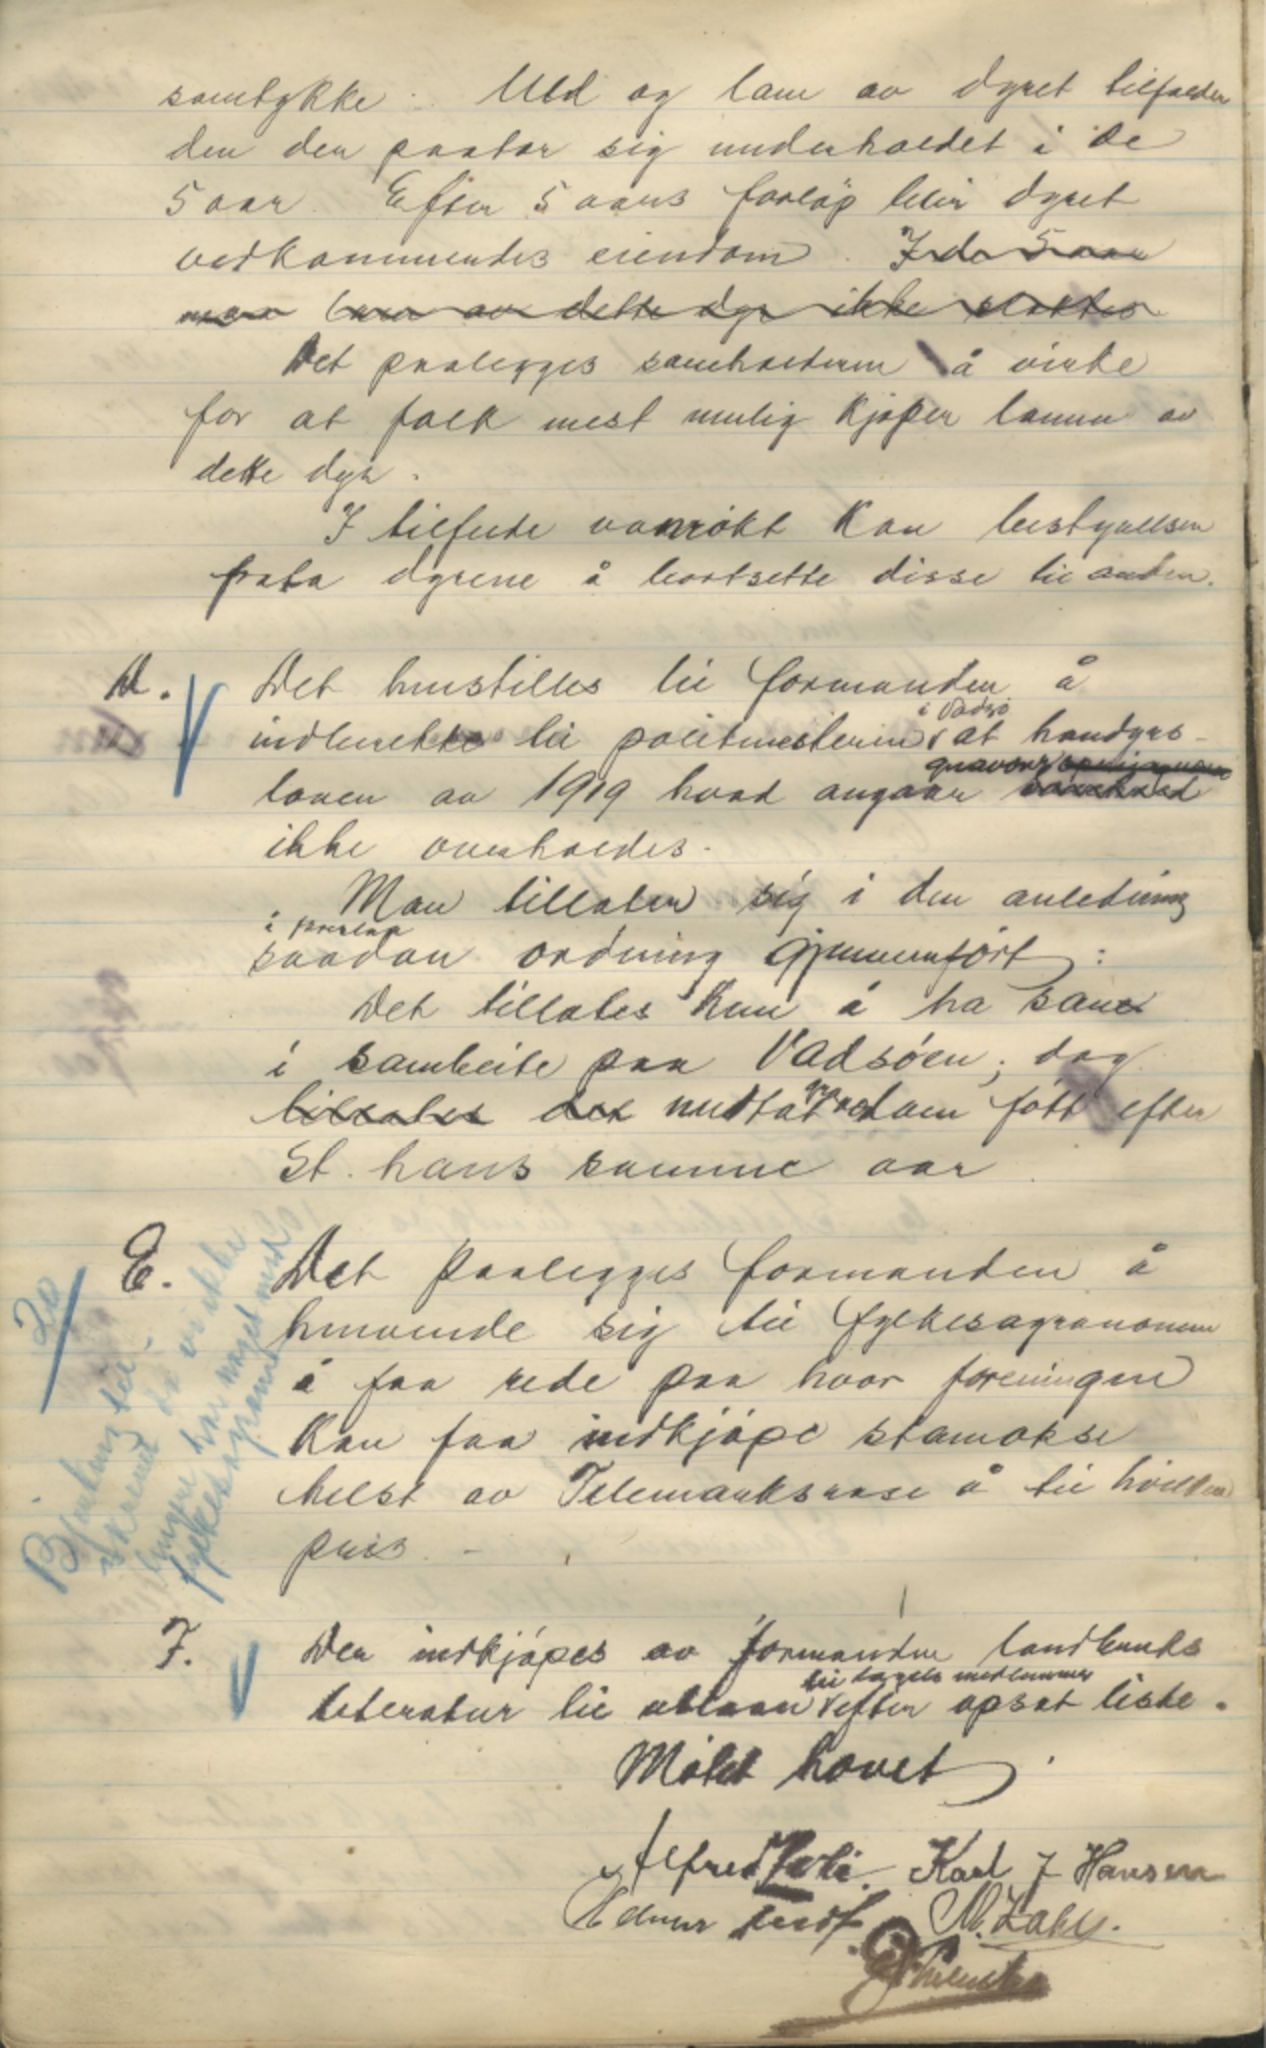 samtykke. Uld og lam av dyret tilfalder
den der paatar sig underholdet i de
5 aar. Efter 5 aars forløp blir dyret
vedkommendes eiendom. I de 5 aar
maa lam av dette dyr ikke slaktes.
Det paalegges saueholderen å virke
for at folk mest mulig kjøper lammene av
dette dyr.
I tilfelde vanrøkt kan bestyrelsen
frata dyrene å bortsette disse til anden.
D. Det henstilles til formanden å
i Vadsø
indberette til politimesteren at handyrs-
gnavere
loven av 1919 hvad angaar
ikke overholdes.
Man tillater sig i den anledning
saadan ordning gjennemført:
Det tillates kun å ha sauer
i saubeite paa Vadsøen; dog
tillates det undtat lam født efter
St. hans samme aar
E. Det paalegges formanden å
henvende sig til fylkesagronomen
å faa rede paa hvor foreningen
kan faa indkjøpe stamokse
helst av Telemarksrase å til hvilken
pris. -
20
Bjørkeng til-
skrevet da vi ikke
lenger har noget med
fylkesagronomen
F. Der indkjøpes av formanden landbruks
til lagets medlemmer
literatur til utlaan efter opsat liste.
Møtet hævet.
Alfred Karl J Hansen
M. Zahl.